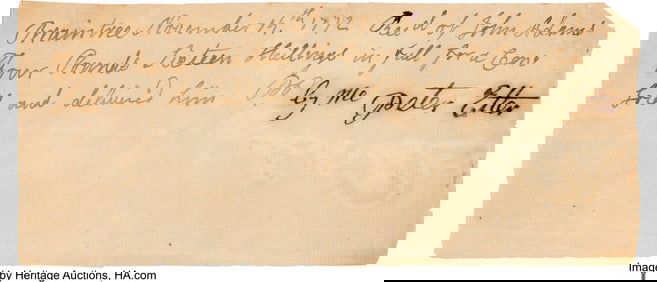 Braintree November 14th 1772 Rec'd of John Adams
Four Pounds Sixteen Shillings in full for a Cow
Sold and deliver'd him
By me
Image
by Heritage Auctions, HA.com